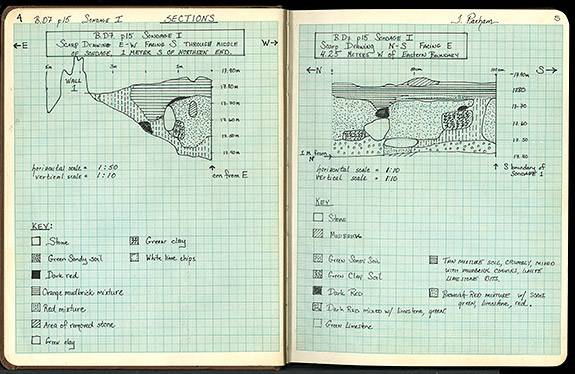 4 B.D7. p15 SONDAGE I SECTIONS
B.D7. p15 SONDAGE I
SCARP DRAWING E-W FACING S THROUGH MIDDLE
OF SONDAGE, 1 METER S OF NORTHERN END.
←E
W→
WALL
1
17.90m
17.80m
17.70m
17.60m
17.50m
17.40m
cm from E
horizontal scale = 1:50
vertical scale = 1:10
KEY:
Stone
Green Sandy soil
Dark red
Orange mudbrick mixture
Red mixture
Area of removed stone
Green clay
White lime chips
J. Parham 5
B.D7. p15 SONDAGE I
SCARP DRAWING N-S FACING E
4.25 METERS W OF EASTERN BOUNDARY
←N
S→
1 m. from
N
S boundary of
SONDAGE 1
horizontal scale = 1:10
vertical scale 1:10
KEY
STONE
MUDBRICK
GREEN SANDY SOIL
GREEN CLAY SOIL
DARK RED
DARK RED MIXED W/ LIMESTONE, GREEN
GREEN LIMESTONE
TAN MIXTURE SOIL, CRUMBLY, MIXED
WITH MUDBRICK CHUNKS, WHITE
LIMESTONE BITS.
BROWNISH-RED MIXTURE W/ SOME
green, limestone, red.